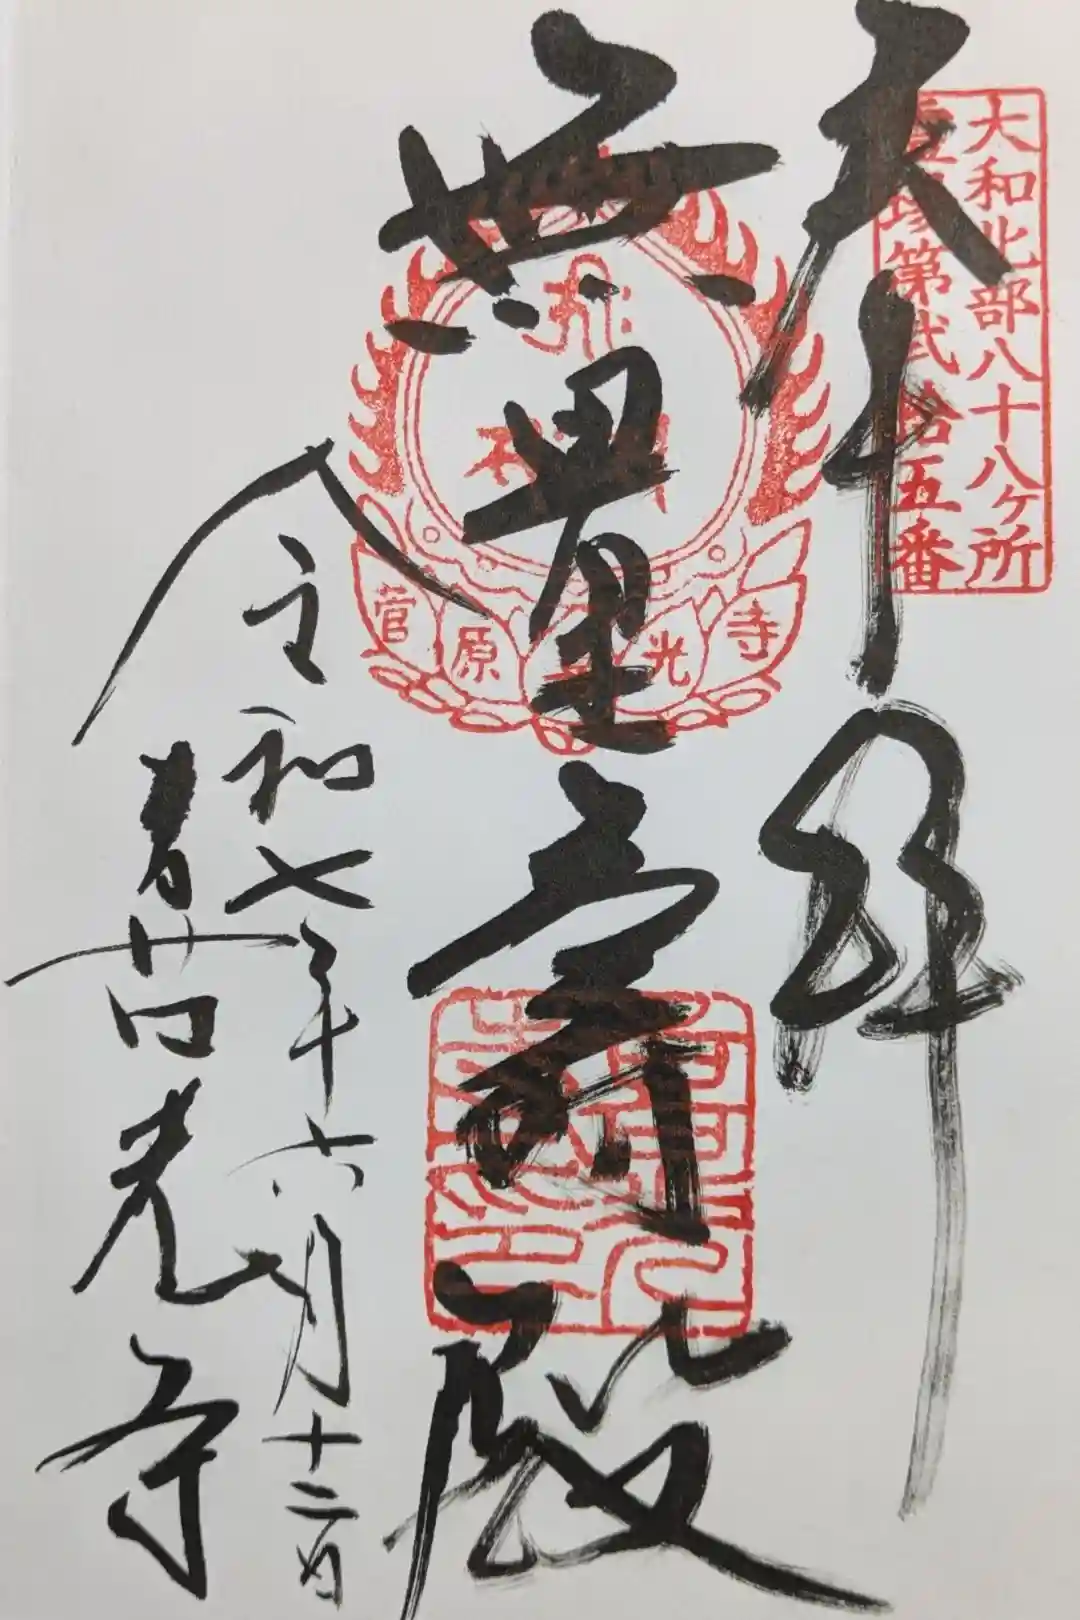 大和北部八十八ヶ所
霊場第弐拾五番
奉拝
無量寿殿
菅原 光寺
令和七年六月十二日
喜光寺